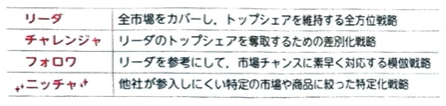 リーダ 全市場をカバーし，トップシェアを維持する全方位戦略
チャレンジャ リーダのトップシェアを奪取するための差別化戦略
フォロワ リーダを参考にして，市場チャンスに素早く対応する模倣戦略
ニッチャ 他社が参入しにくい特定の市場や商品に絞った特定化戦略